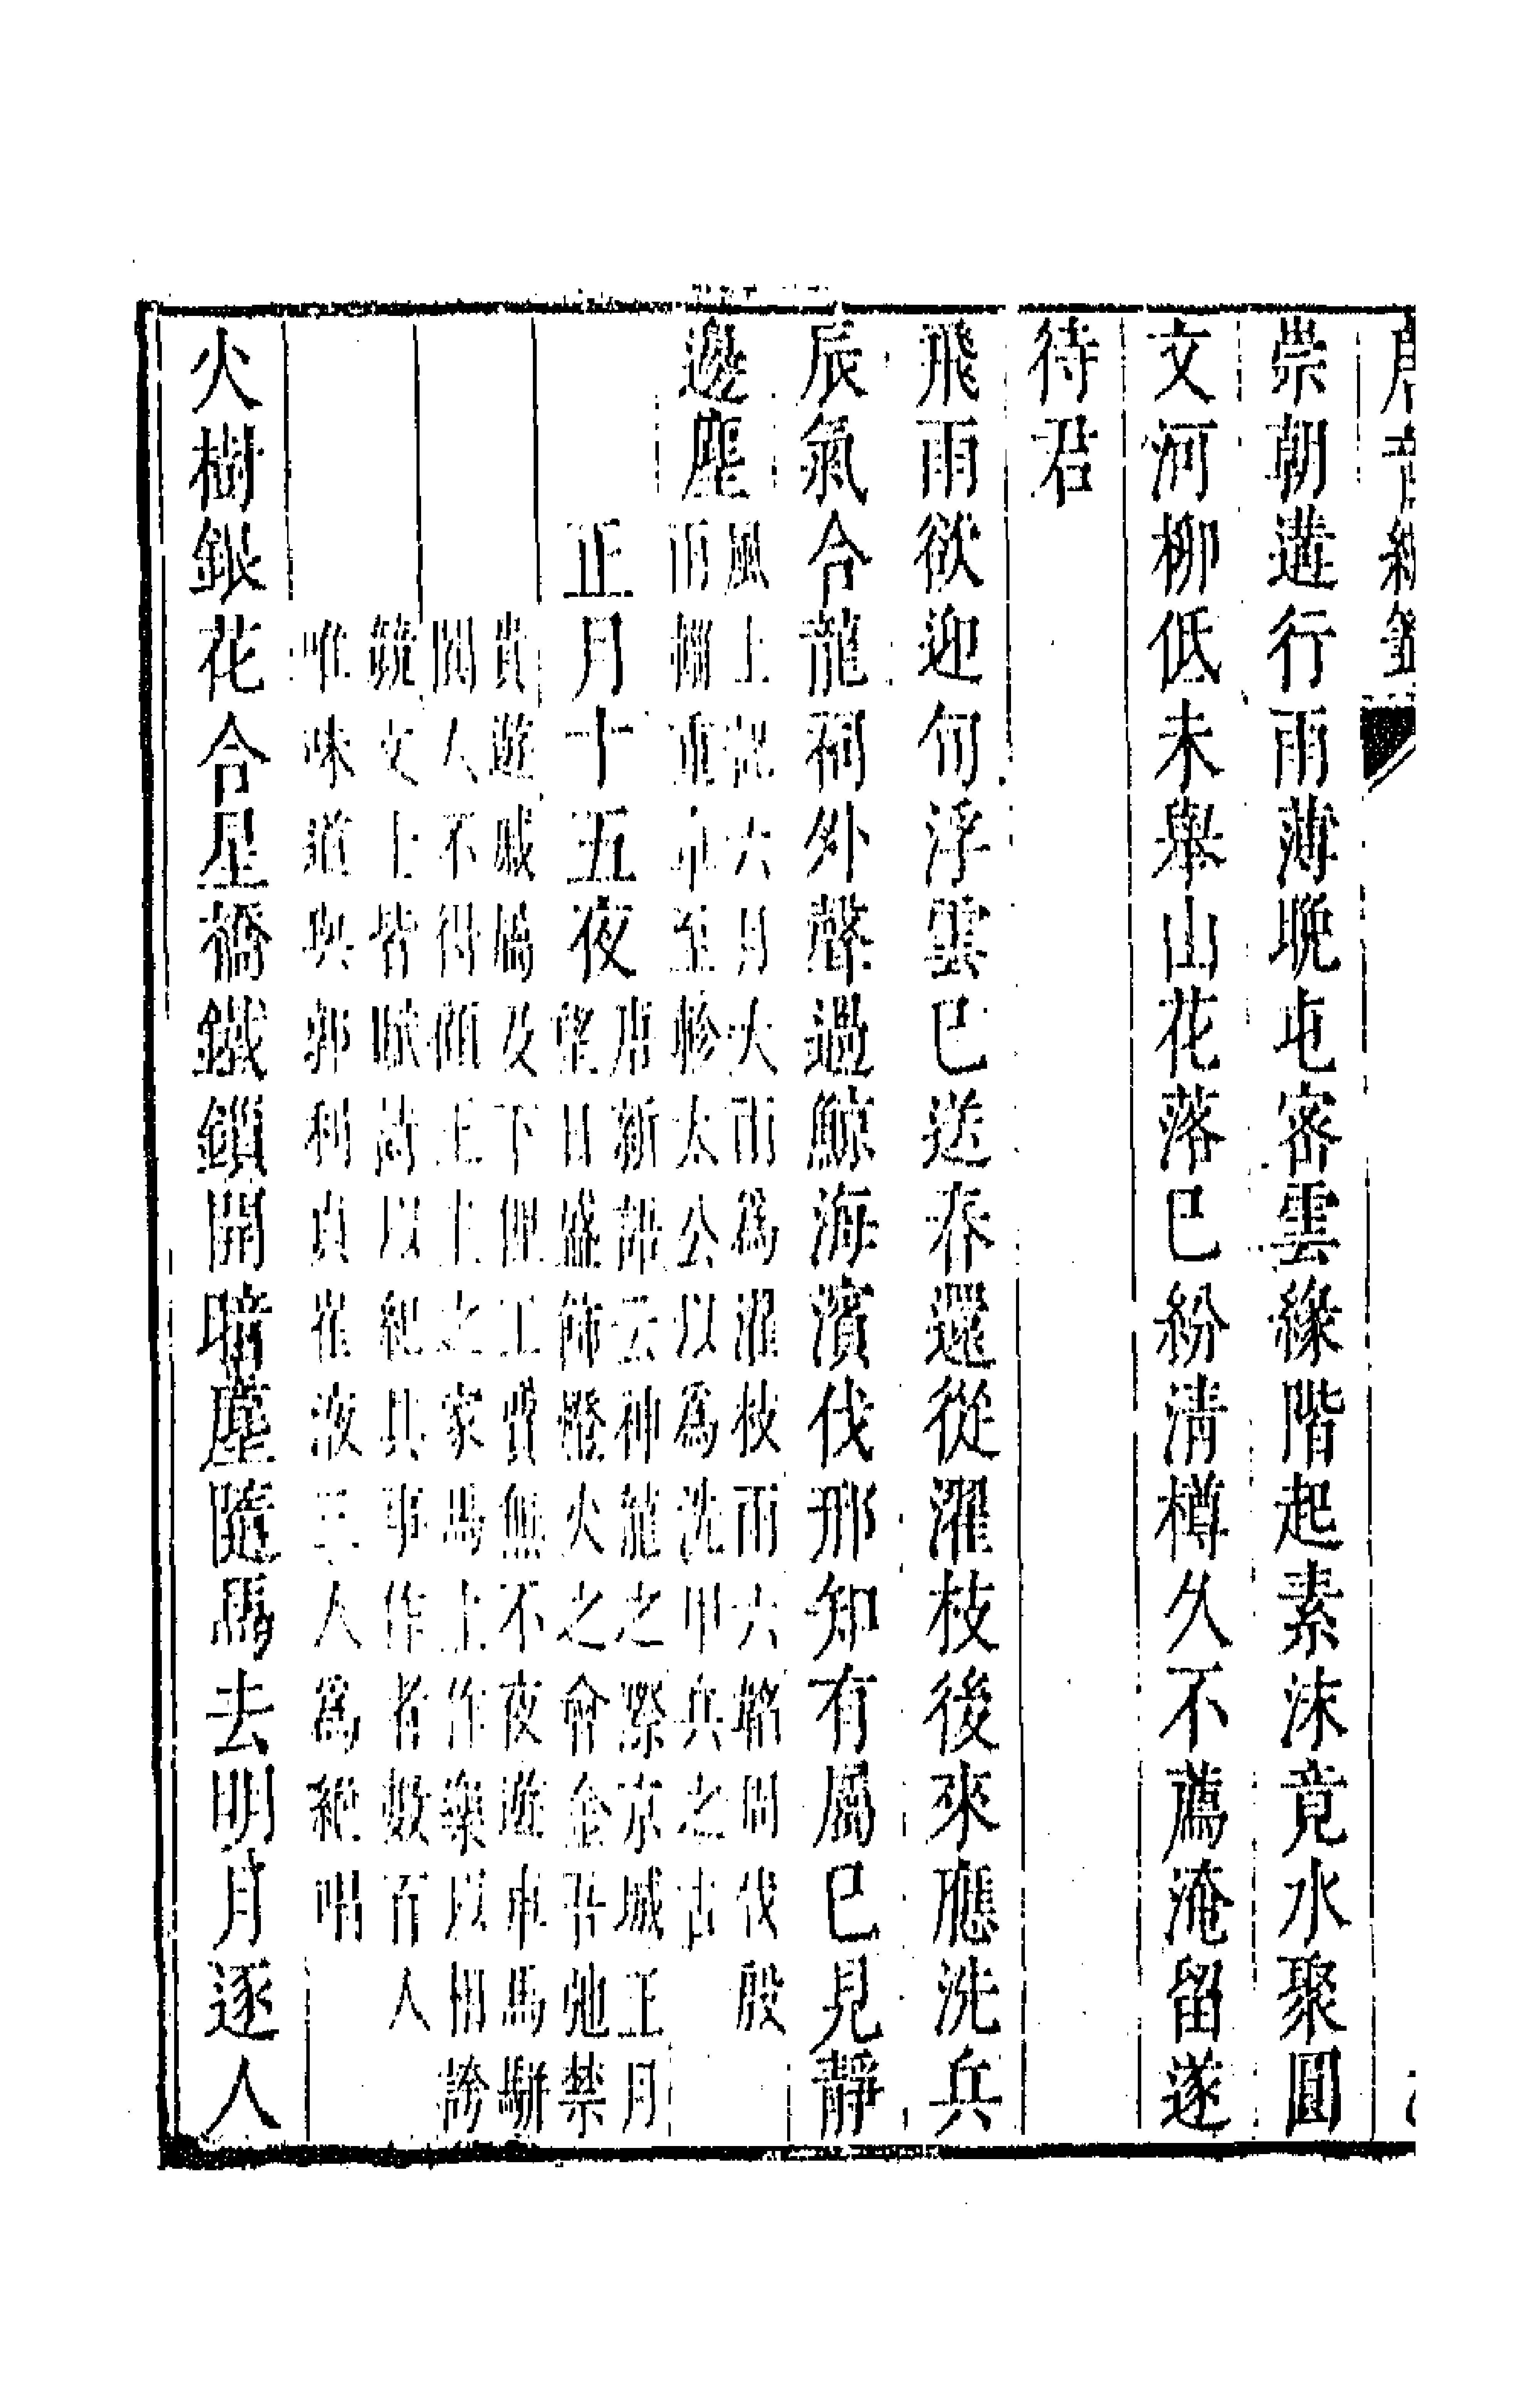 唐音統籤
崇朝遘行雨薄晚屯密雲緣階起素沫竟水聚圓
文河柳低未舉山花落已紛清樽久不薦淹留遂
待君
飛雨欲迎旬浮雲已送春還從濯枝後來應洗兵
辰氣合龍祠外聲過鯨海濱伐邢知有屬已見靜
邊塵
風土記六月大雨爲濯枝雨六韜周伐殷
雨輜重車至軫太公以爲洗甲兵之
正月十五夜
唐新語云神龍之際京城正月
望日盛飾燈火之會金吾弛禁
貴遊戚屬及下俚工賈無不夜遊車馬駢
闐人不得顧王主之家馬上作樂以相誇
競文士皆賦詩以紀其事作者數百人
唯味道與郭利貞崔液三人爲絕唱
火樹銀花合星橋鐵鎖開暗塵隨馬去明月逐人